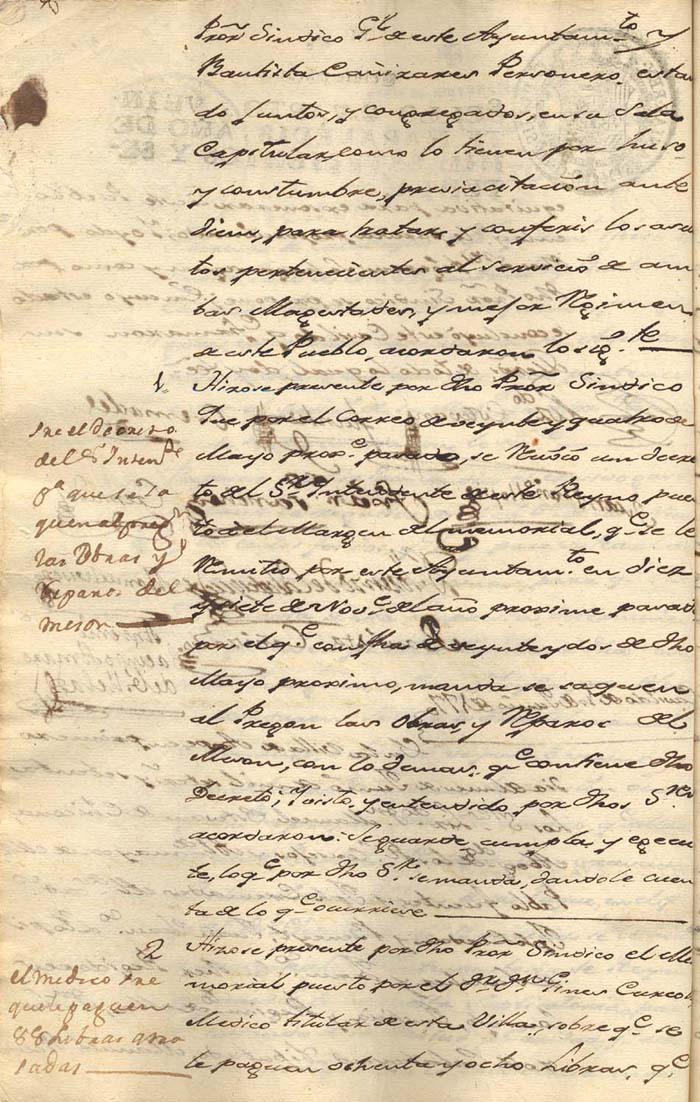 Pror Sindico Gl de este Ayuntamto y
Bautista Cañizares Personero, estan
do Juntos, y congregados, en su Sala
Capitular, como lo tienen por huso
y constumbre, previa citación ante
diem, para tratar, y conferir los asun
tos pertenecientes al servicio de am
bas Magestades, y mejor Regimen
de este Pueblo, acordaron lo sigte
1. Hizose presente por dho Pror Sindico
Que por el Correo de veynte y quatro de
Mayo proxo pasado, se recivió un decre
to del Sr Intendente de este Reyno, pues
to al Margen del memorial, qe se le
Remitió por este Ayuntamto en diez
y siete de Nove del año proxime pasado
por el qe con fha de veynte y dos de dho
Mayo proximo, manda se saquen
al Pregon las Obras, y Reparos del
Meson, con lo demas, qe contiene dho
Decreto; Visto, y entendido por dhos Sres
acordaron: Se guarde, cumpla, y egecu
te, lo qe por dho Sr se manda, dandole cuen
ta de lo qe ocurriese
2 Hizose presente por dho Pror Sindico el Me
morial puesto por el Dr Dn Gines
Medico titular de esta Villa, sobre qe se
le paguen ochenta y ocho Libras, qe
sre el Decreto
del Sr Intende
pa que se sa
quen al preg
las Obras y
Reparos del
meson
el medico sre
que le paguen
88 Libras atra
sadas